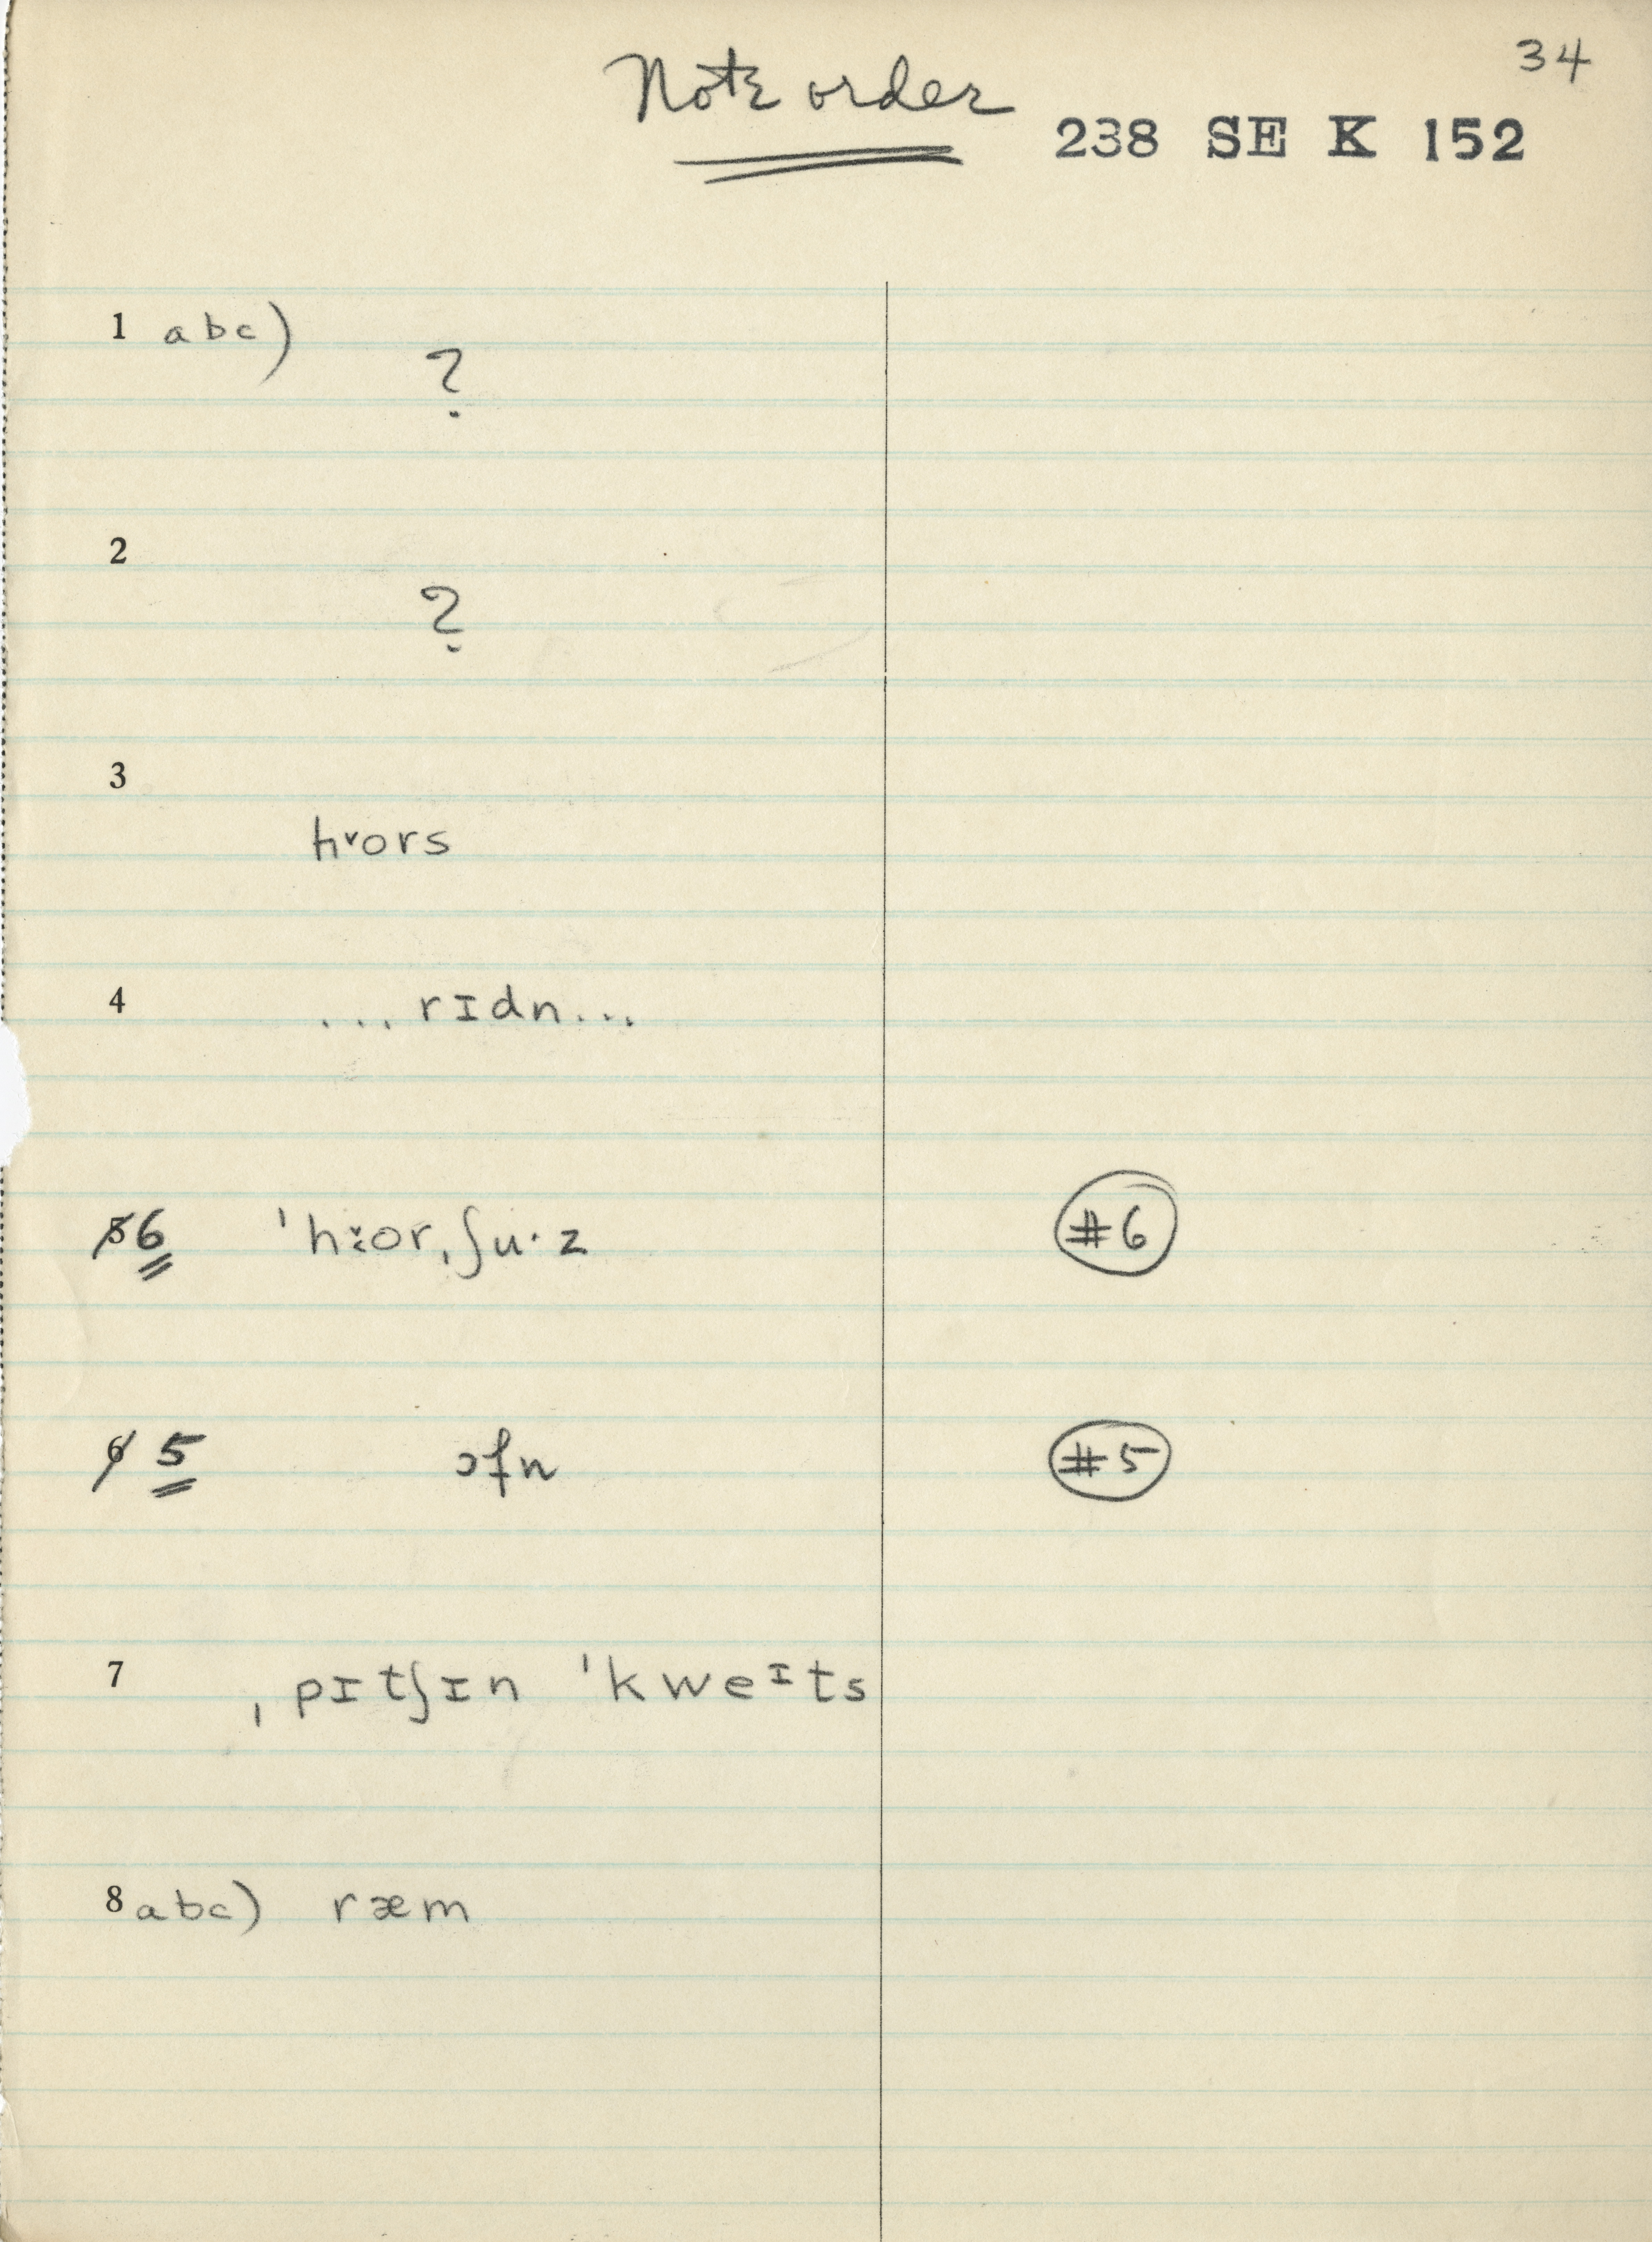 34
Note order
238 SE K 152
1 abc)
?
2
?
3
h˅ors
4 ... rɪdn...
5 6 ˈh˅ːor,ʃu·z #6
6 5 ɔfn #5
7 ˌpɪtʃɪn ˈkweᶦts
8 abc) ræm